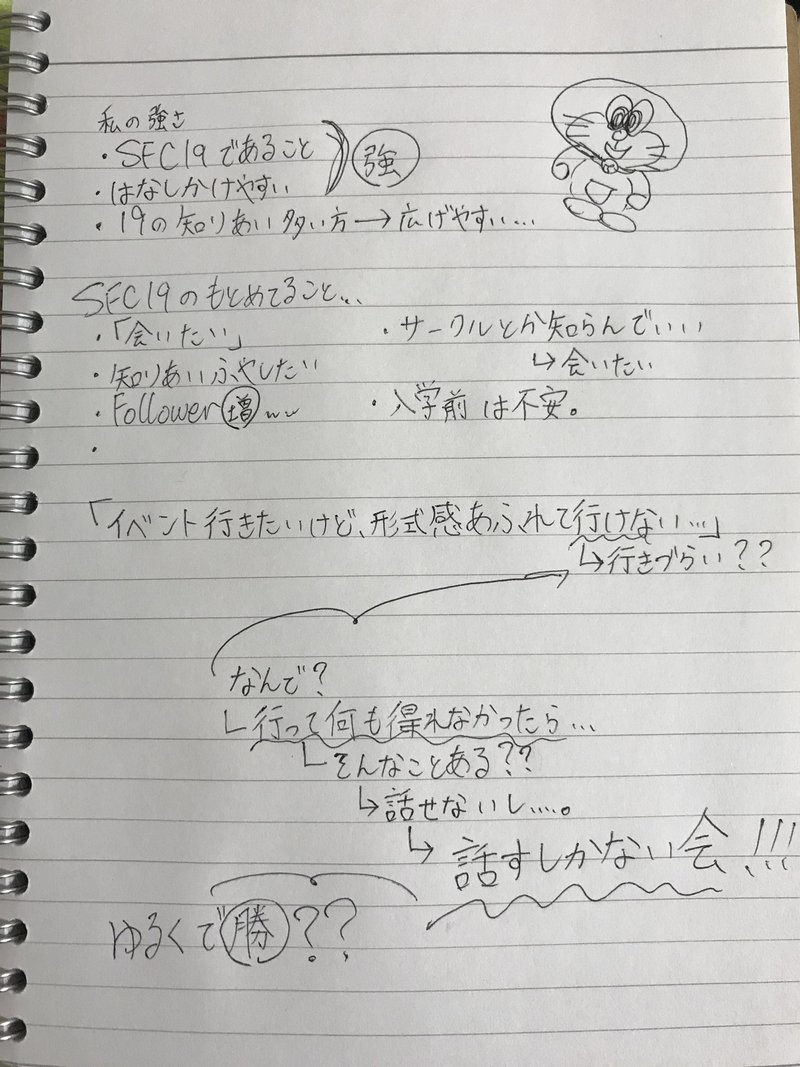 私の強さ
・SFC19であること
・はなしかけやすい
強
・19の知りあい多い方→広げやすい…
SFC19のもとめてること…
・「会いたい」
・サークルとか知らんでいい
↳会いたい
・知りあいふやしたい
・Follower増
・入学前は不安。
・
「イベント行きたいけど、形式感あふれて行けない…」
↳行きづらい??
なんで?
└行って何も得れなかったら…
└そんなことある??
↳話せないし…。
↳話すしかない会!!!
ゆるくで勝??